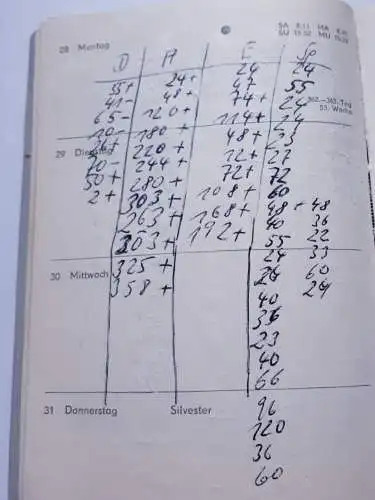 28 Montag
SA 8.11 MA
SU 15.52 MU
D A E Sp
35+ 24+ 24 24
41- 48+ 47 55
65- 120+ 74+ 24
362.-363. Tag
53. Woche
10- 180+ 114+ 24
29 Dienstag
26+ 220+ 48+ 23
20- 244+ 12+ 27
50+ 280+ 72+ 72
2+ 303+ 108+ 60
263+ 168+ 48+ 48
303+ 192+ 40 36
55 22
325+ 24 33
30 Mittwoch
358+ 24 60
40 24
36
23
40
66
31 Donnerstag Silvester
96
120
36
60